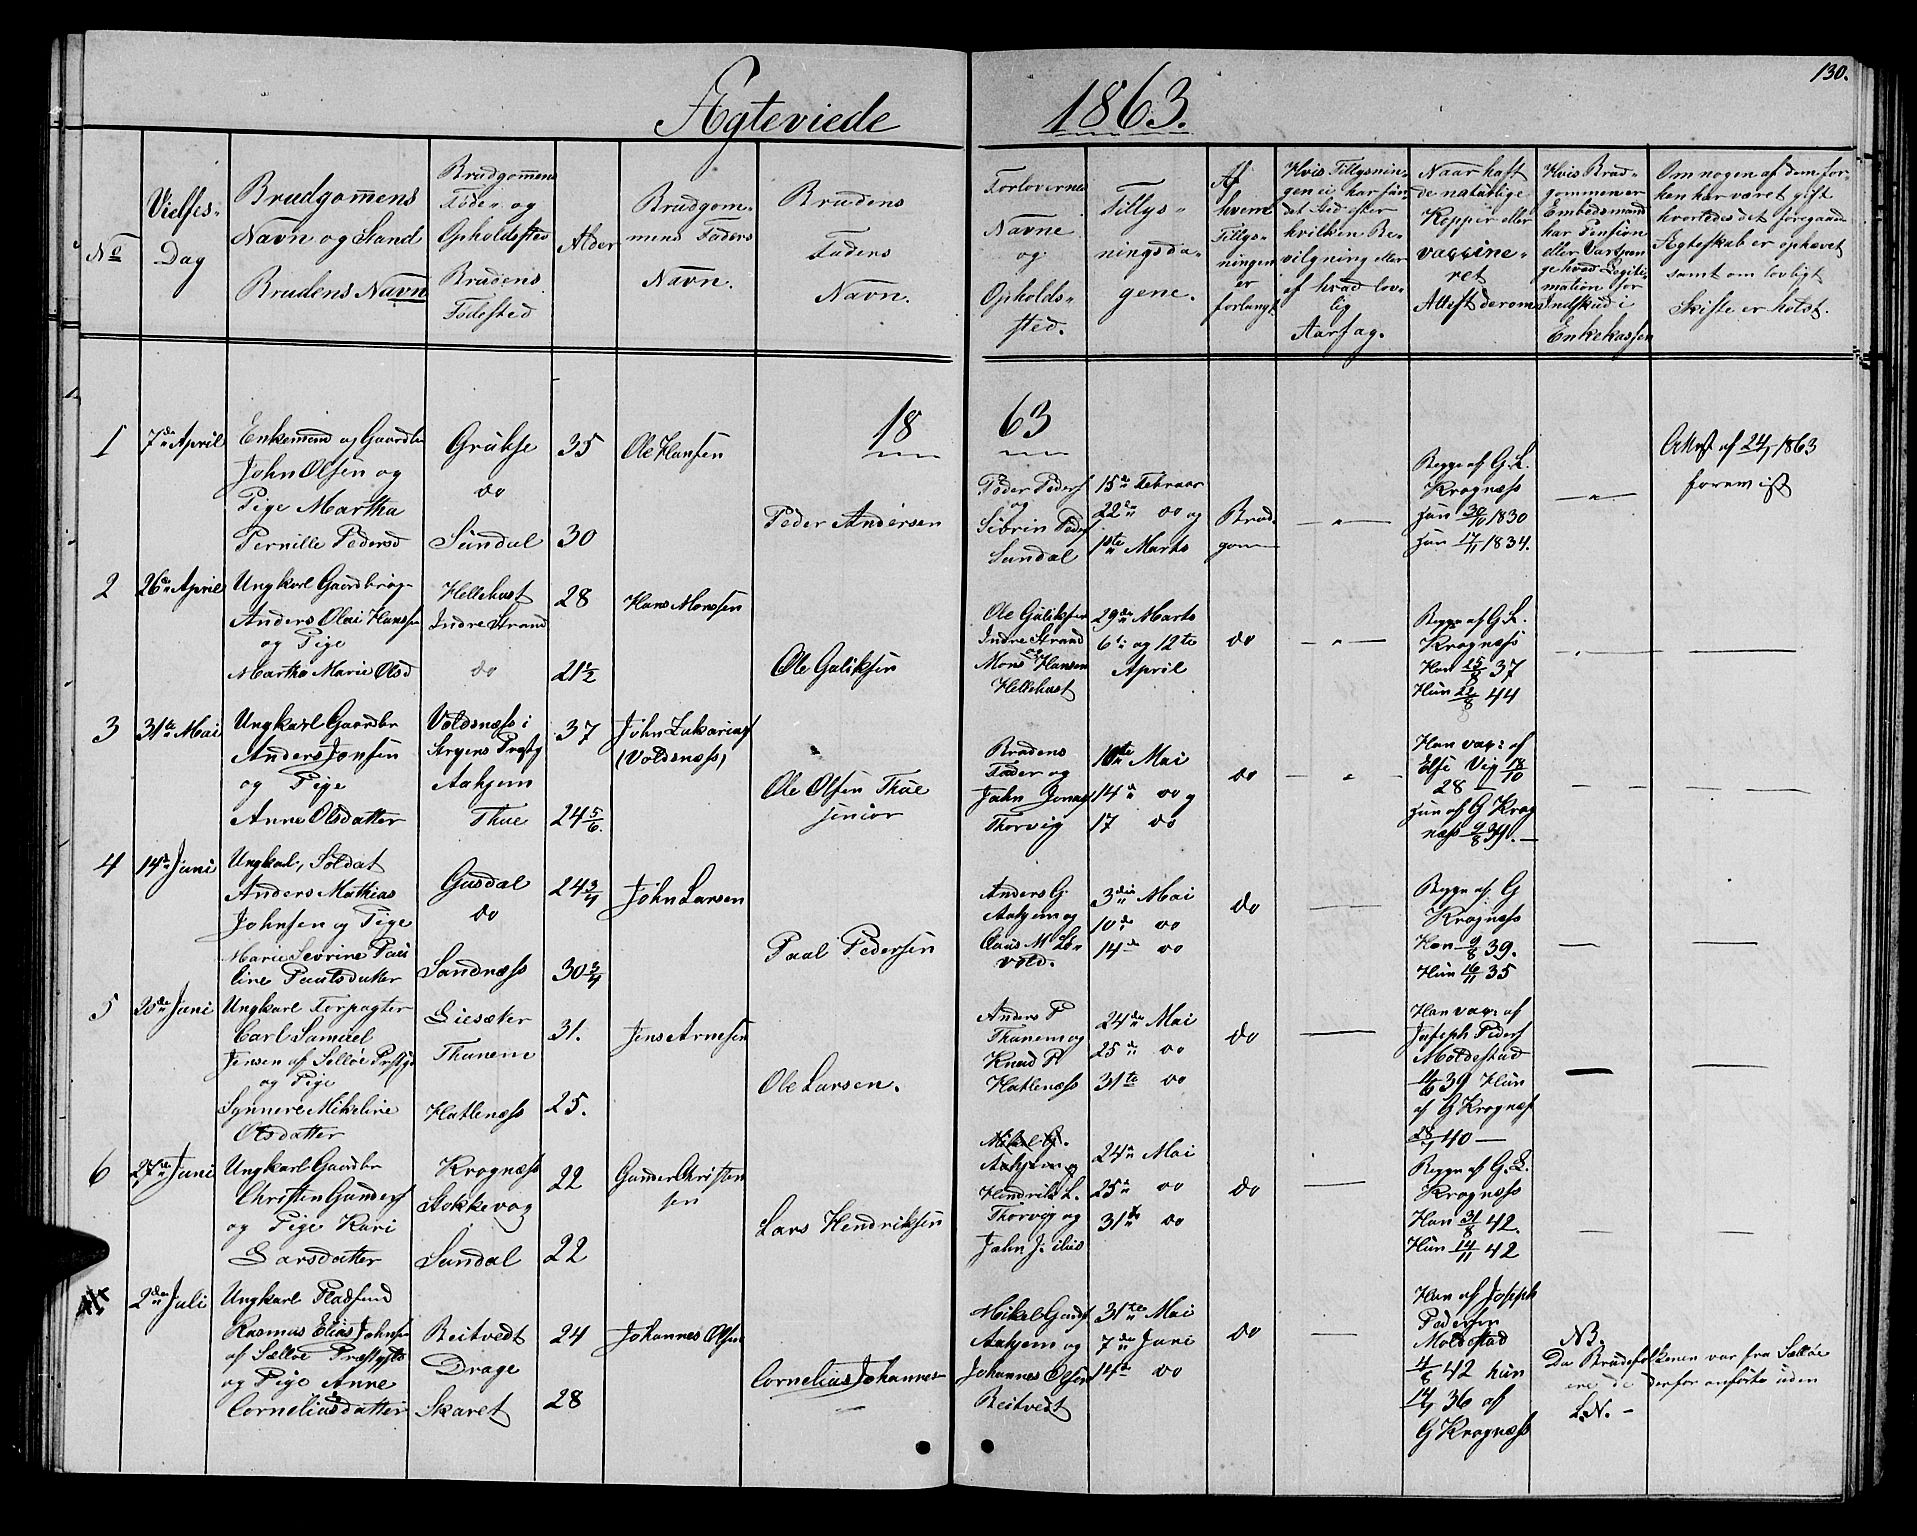 130.
Ægteviede 1863.
No
Vielses-
Dag
Brudgomens
Navn og Stand
Brudens Navn
Brudgomens
Føde- og
Opholdssted
Brudens
Fødested
Alder
Brudgom-
mens Faders
Navn.
Brudens
Faders
Navn.
Forlovernes
Navne
og
Opholds-
sted.
Tillys-
ningsda-
gene.
Af
hvem
Tillys-
ningen
er
forlangt
Hvis Tillysnin-
gen ei har fun-
det Sted efter
hvilken Be-
vilgning eller
af hvad lov-
lig
Aarsag.
Naar haft
de natürlige
Kopper eller
vaccine-
ret
Attest derom
Hvis Brud-
gommen er
Embedsmand
har Pension
eller Vartpen-
ge hvad Legiti-
mation for
Indskud i
Enkekassen
Om nogen af dem for-
hen har været gift
hvorledes det foregaaende
Ægteskab er ophævet
samt om lovligt
Skifte er holdt.
1863
1
7de April
Enkemand og Gaardbr
John Olsen og
Pige Martha
Pernille Pedersd
do
Sündal
35
30
Ole Hansen
Peder Andersen
Peder Peders
og
Sivrin Peder
Sandal
15de Februar
22de do og
1ste Marts
Brud-
gom
Begge af G. L.
Krognæss
han 30/10 1830
hun 17/11 1834.
Attest af 24/1 1863
forevist
2
26de April
Ungkarl Gaardbrug-
Anders Olai Hanssen
og Pige
Martha Marie Olsd
Hellehust
Indre Strand
do
28
21½
Hans Monssen
Ole Guliksen
Ole Guliksen
Indre Strand
og
Mons Hansen
Hellehust
29de Marts
6te og 12te
April
do
Begge af G. L.
Krognæss
Han 15/8 37
Hun 22/8 44
3
31te Mai
Ungkarl Gaardbr
Anders Jonsen
og Pige
Anne Olsdatter
Voldsnæss i
Stryens Præstg
Aahjem
Thue
37
24 5/6.
John Zakarias
(Voldsnæss)
Ole Olsen Thue
senior
Brudens
Fader og
John Jonas
Thorvig
10te Mai
14de do og
17 do
do
Han vac: af
Else Vig 18/10
28
hun af G Krog
næss 9/8 39.
4
14de Juni
Ungkarl, Soldat
Anders Mathias
Johnsen og Pige
Marie Sevrine Pau
line Paulsdatter
Gusdal
do
Sandnæss
24 3/4
30 3/4
John Larsen
Paal Pedersen
Anders G.
Aahjem og
Claus M Lø-
vold.
3die Mai
10de do
14de do
do
Begge af G
Krognæss
Han 9/8 39.
Hun 16/11 35
5
20de Juni
Ungkarl Forpagter
Carl Samuel
Jensen af Selløe Præstgd
og Pige
Synnere Mikeline
Olsdatter
Liesæter
Thunem
Hatlenæss
31.
25.
Jens Arnesen
Ole Larsen.
Anders P
Thunem og
Knud P
Hatlenæss
24de Mai
25de do
31te do
do
Han vac: af
Joseph Peders
Moldestad
39 Hun
af G Krognæs
40
6
27de Juni
Ungkarl Gaardbr
Christen Gunders
og Pige Kari
Larsdatter
Krognæss
Stokkevog
Sandal
22
22
Gunder Christen
sen
Lars Hendriksen
Mikel G.
Aahjem og
Hendrik L.
Thorvig og
John J.
24de Mai
25de do
31te do
do
Begge af G. L.
Krognæss
Han 31/8 42.
Hun 14/11 42
2den Juli
Ungkarl Pladsmd
Rasmus Elias Johns
af Selløe Præstgjeld
og Pige Anne
Corneliusdatter
Reitvedt
Drage
Skaret
24
28
Johannes Olsen
Cornelius Johannes
Mikel Gunds
Aahjem og
Johannes Olsen
Reitvedt
31te Mai
7de Juni
14de do
do
Han af Joseph
Pedersen
Moldestad
4/6 42 hun
36 af
G Krognæss
NB.
Da Brudefolkenen var fra Selløe
ere de derfor anførte uden
L.N.